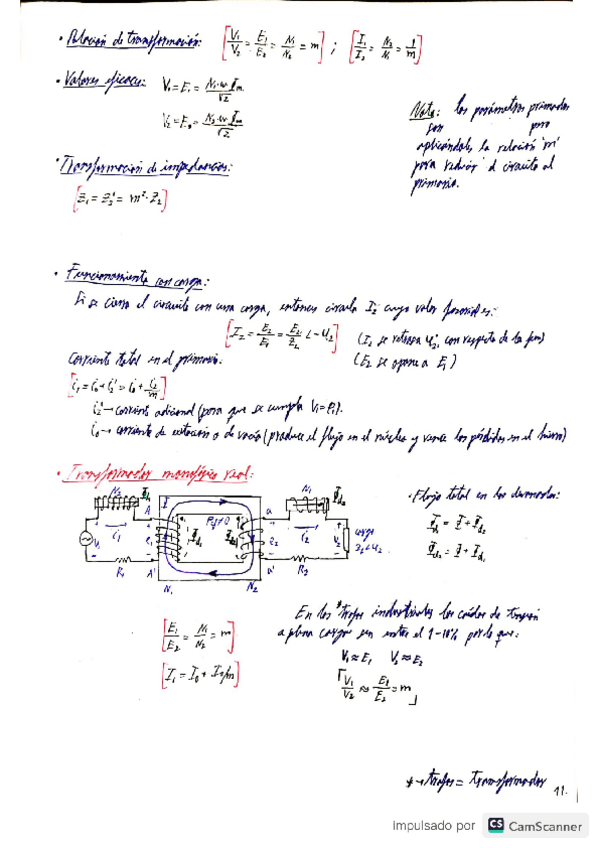 · Relación de transformación: [V₁/V₂ = E₁/E₂ = N₁/N₂ = m] ; [I₁/I₂ = N₂/N₁ = 1/m]
· Valores eficaces: V₁ = E₁ = N₁·w·Φm/√2
V₂ = E₂ = N₂·w·Φm/√2
Nota: los parámetros primados
son pero
aplicándoles la relación "m"
para reducir el circuito al
primario.
· Transformación de impedancias:
[Z₁ = Z₂' = m²·Z₂]
· Funcionamiento con carga:
Si se cierra el circuito con una carga, entonces circula I₂ cuyo valor es:
(I₂ se retrasa φ₂ con respecto de la fem)
(E₂ se opone a E₁)
Corriente total en el primario.
[i₁ = i₀ + i₂' = i₀ + i₂/m]
i₂' → corriente adicional (para que se cumpla V₁ = e₁).
i₀ → corriente de excitación o de vacío (produce el flujo en el núcleo y vence las pérdidas en el hierro)
· Transformador monofásico real:
N₂ Φd₁ A Φ a N₁ Φd₂
V₁ i₁ e₁ Φd₁ Φd₂ e₂ i₂ V₂ carga
R₁ A' a' R₂
N₁ N₂
· Flujo total en los devanados:
Φ₁ = Φ + Φd₂
Φd₂ = Φ + Φd₁
En los *trafos industriales las caídas de tensión
a plena carga son entre el 1-10% por lo que:
V₁ ≈ E₁ V₂ ≈ E₂
V₁/V₂ ≈ E₁/E₂ = m
[E₁/E₂ = N₁/N₂ = m]
[I₁ = I₀ + I₂/m]
* → trafos = transformador
11.
Impulsado por CS CamScanner